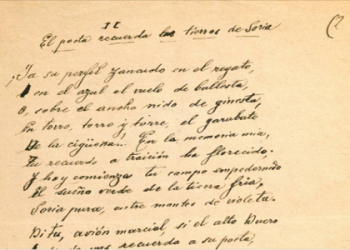 II
El poeta recuerda las tierras de Soria
¡Ya su perfil zancudo en el regato,
en el azul el vuelo de ballesta,
o, sobre el ancho nido de ginesta,
en torre, torre y torre, el garabato
de la cigüeña!... En la memoria mía
tu recuerdo a traición ha florecido;
y hoy comienza tu campo empedernido
el sueño verde de la tierra fría,
Soria pura, entre montes de violeta.
Di tú, avión marcial, si el alto Duero
recuerda a su poeta,